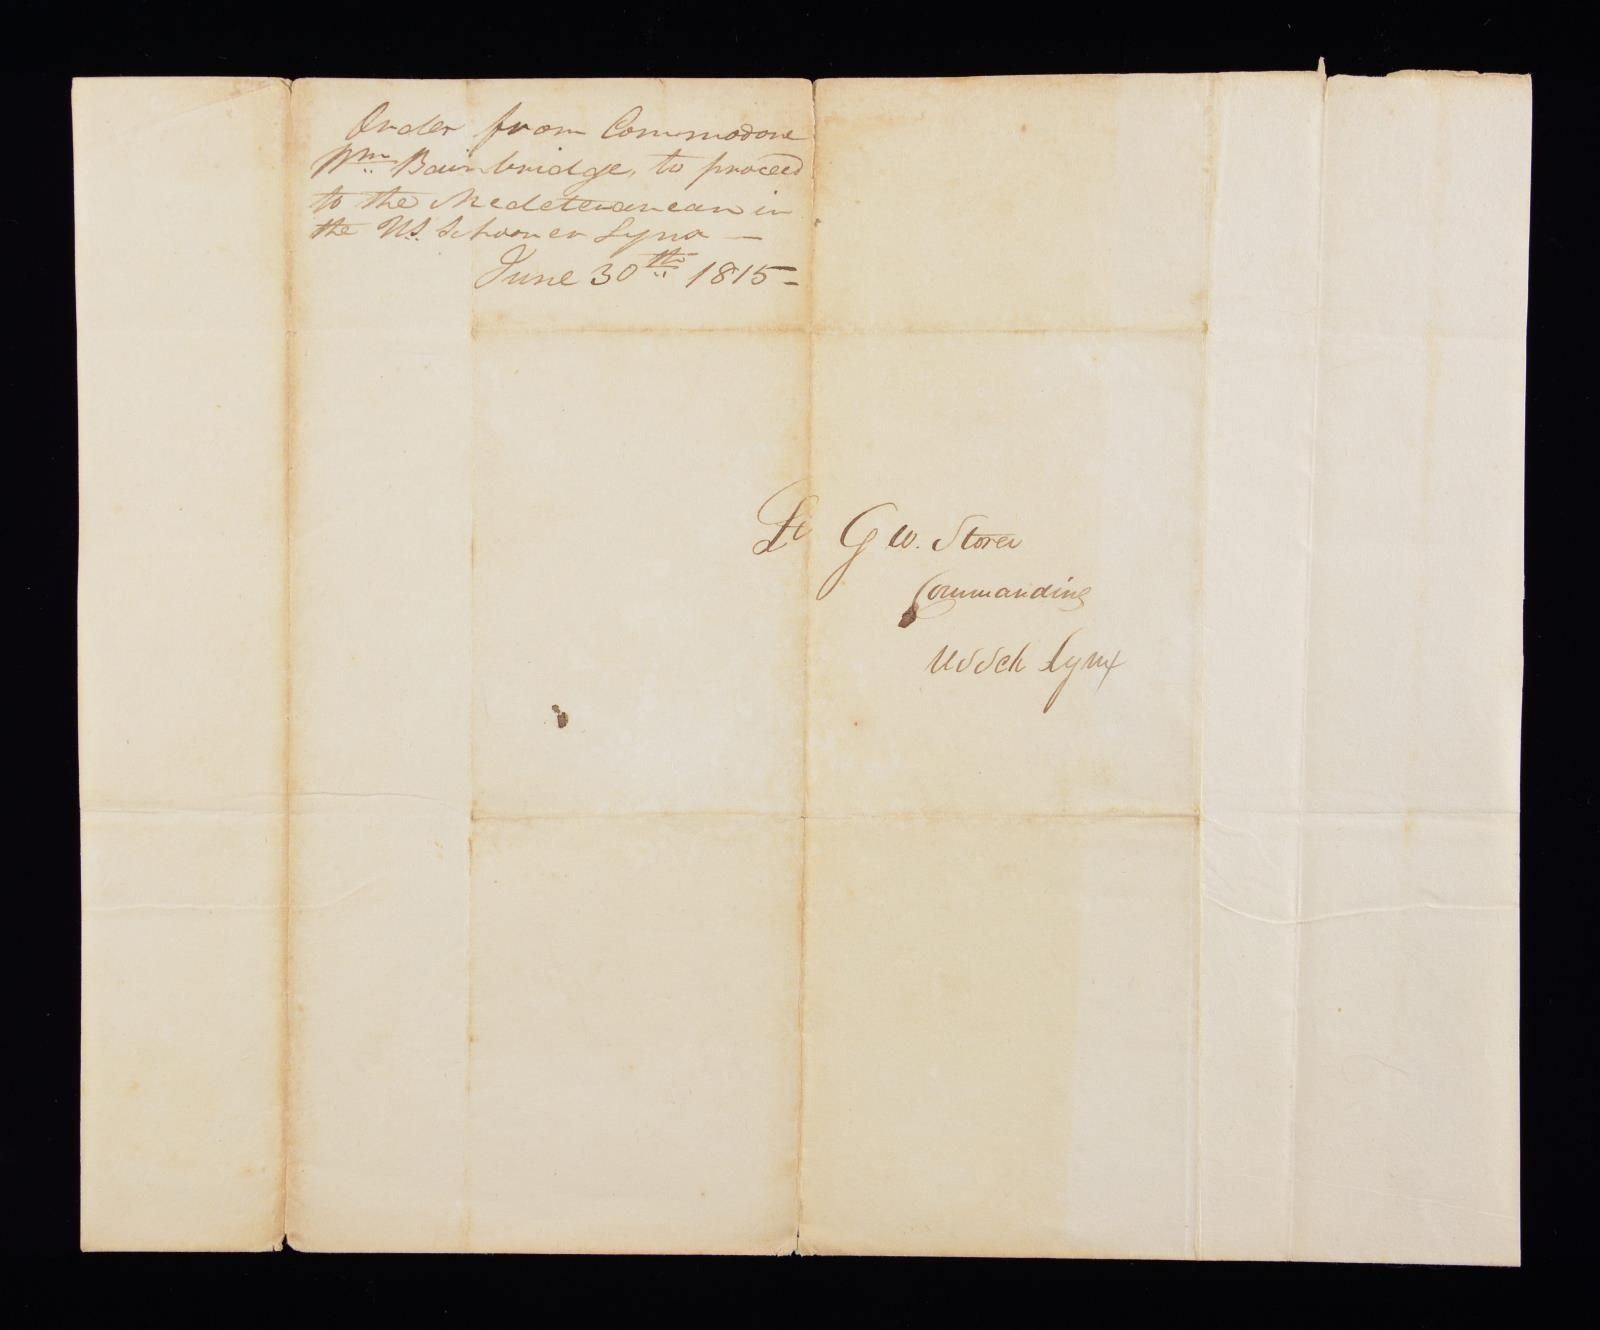 Order from Commodore
Wm. Bainbridge, to proceed
to the Mediteranean in
the U.S. Schooner Lynx —
June 30th 1815 -
Lt G W. Storer
Commanding
US Sch Lynx